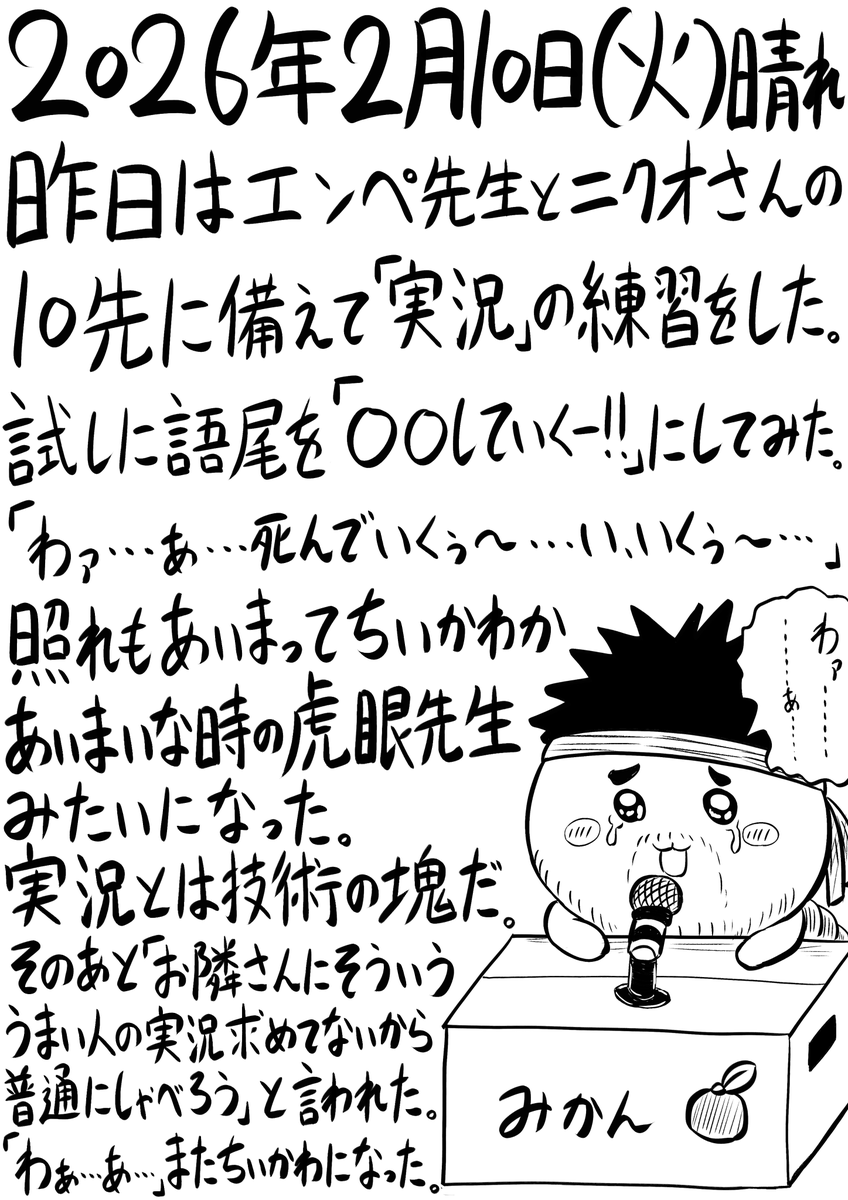 2026年2月10日(火)晴れ
昨日はエンペ先生とニクオさんの
10先に備えて「実況」の練習をした。
試しに語尾を「〇〇していくー!!」にしてみた。
「わァ…ぁ…死んでいくぅ〜…い、いくぅ〜…」
照れもあいまってちいかわか
あいまいな時の虎眼先生
みたいになった。
実況とは技術の塊だ。
そのあと「お隣さんにそういう
うまい人の実況求めてないから
普通にしゃべろう」と言われた。
「わぁ…あ…」またちいかわになった。
わァ……
……ぁ…
みかん